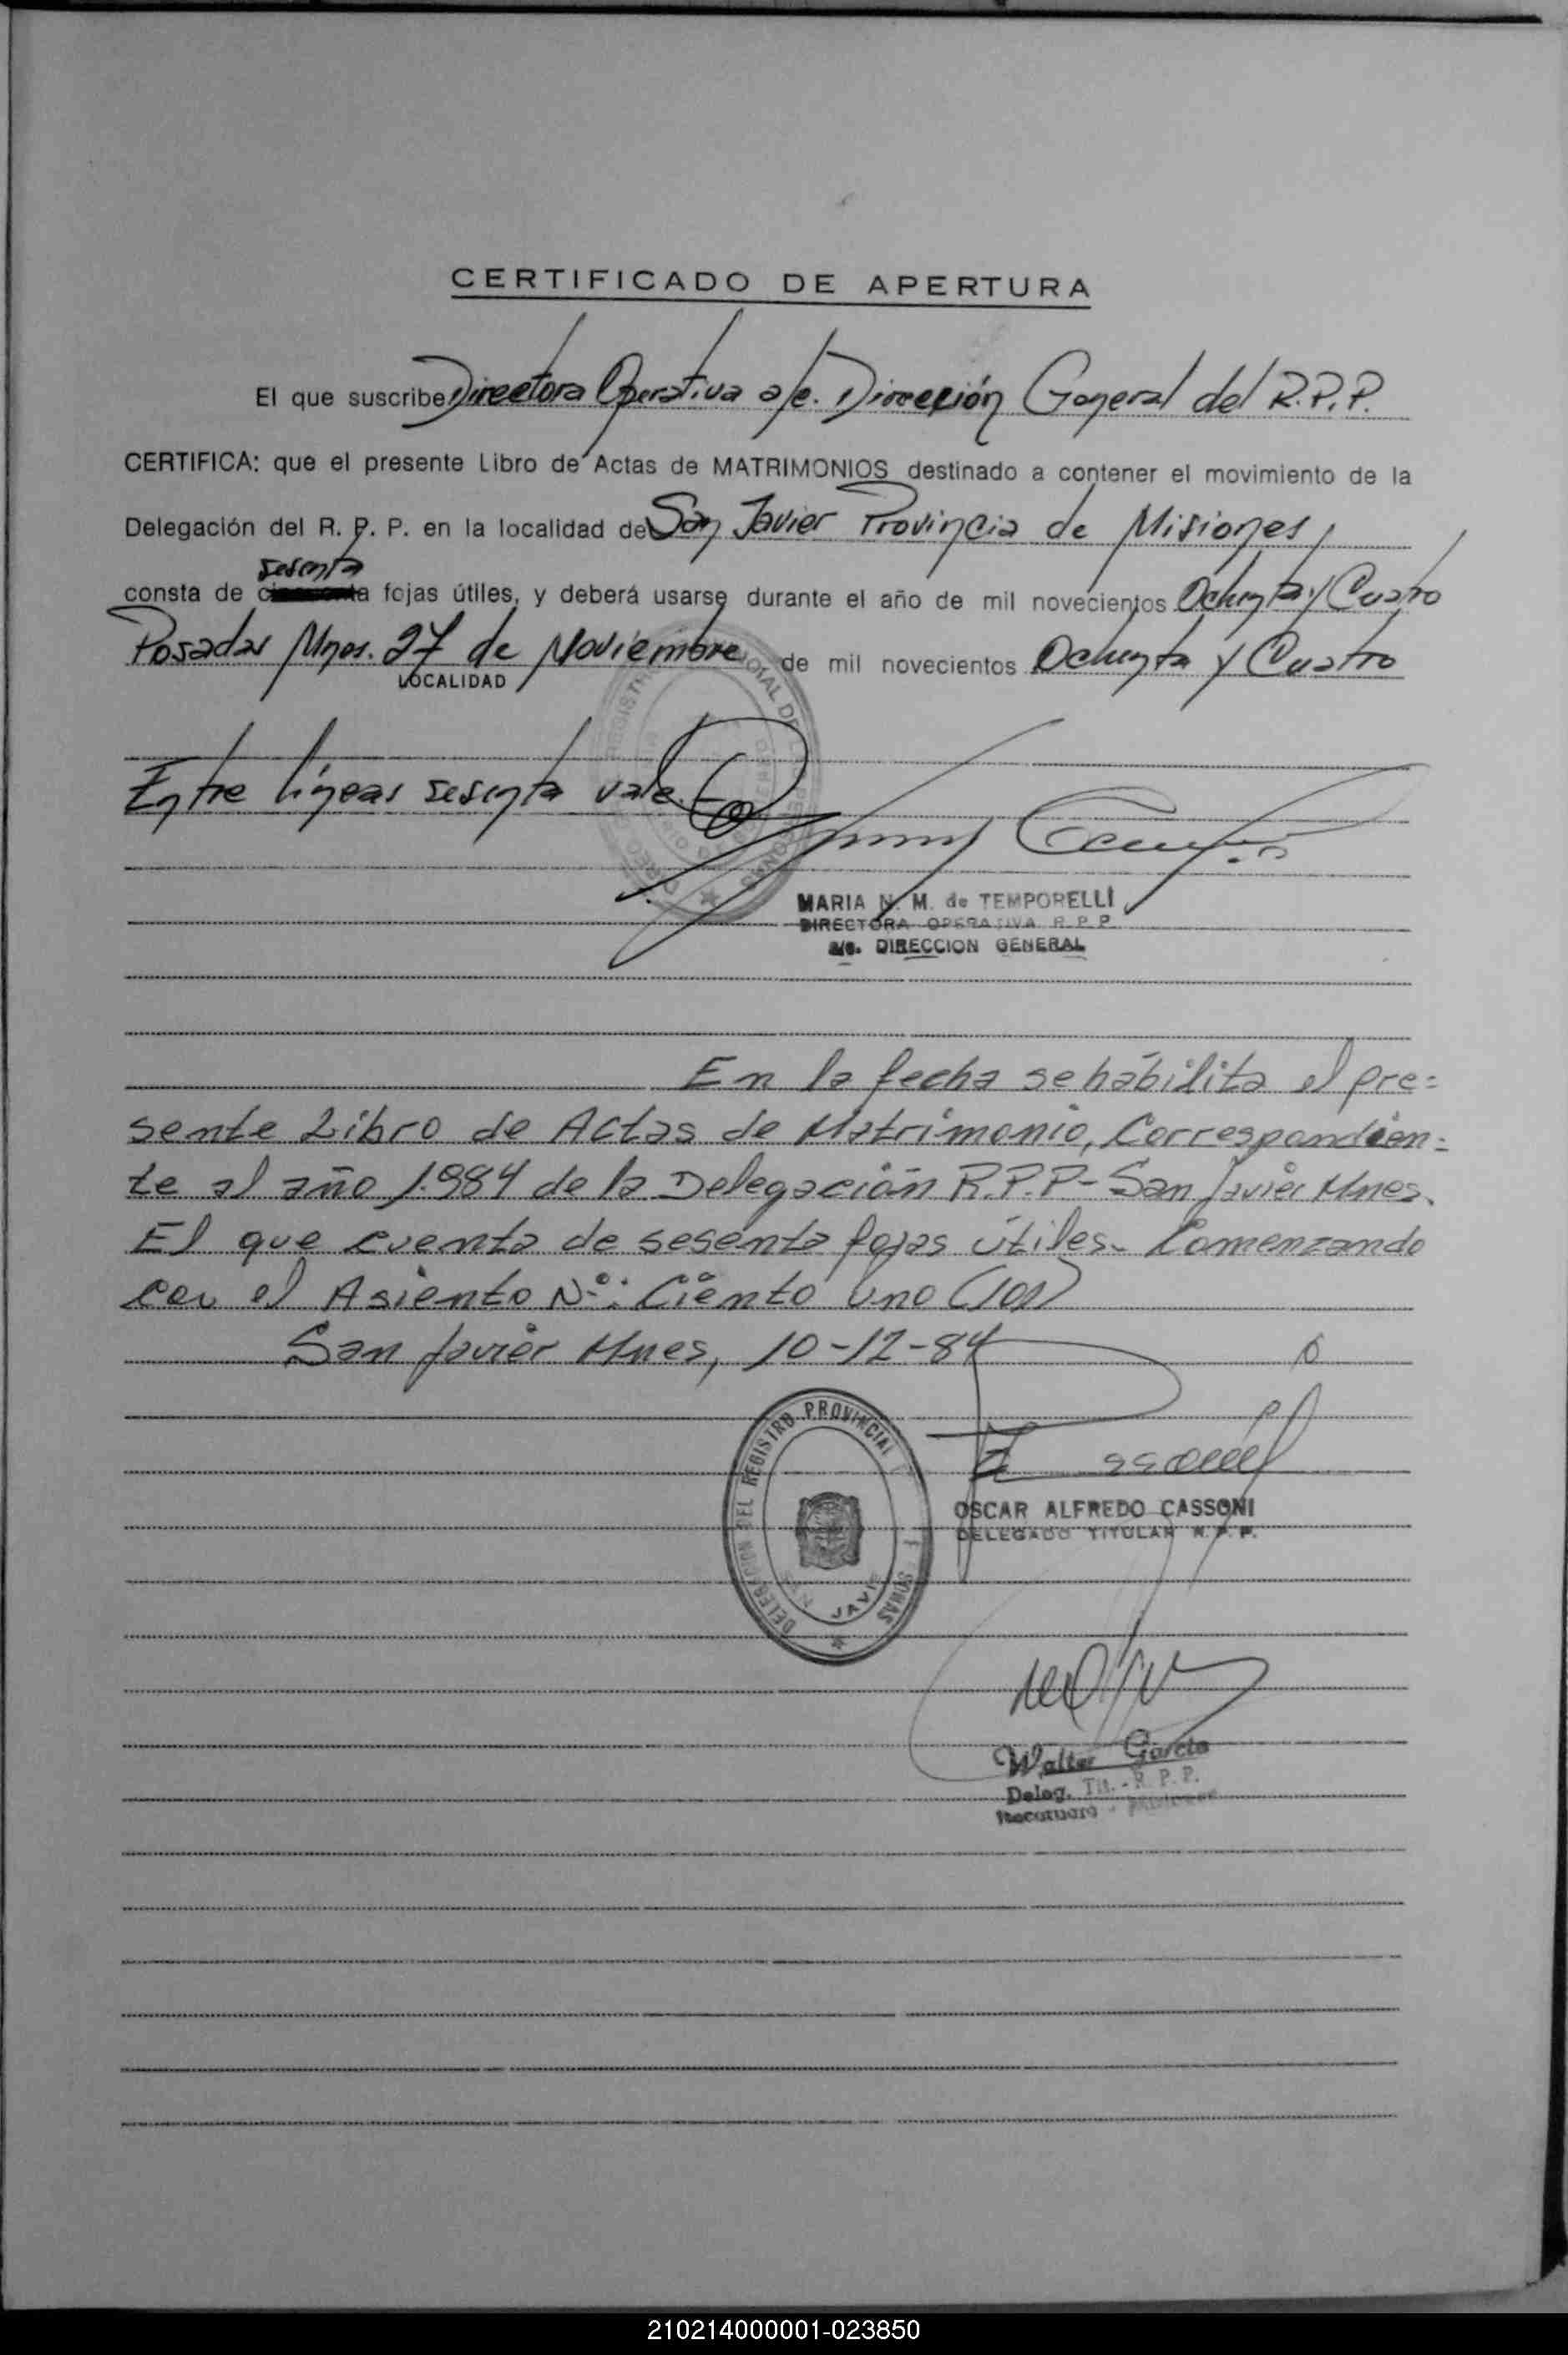 CERTIFICADO DE APERTURA
El que suscribe Directora Operativa a/c. Dirección General del R.P.P.
CERTIFICA: que el presente Libro de Actas de MATRIMONIOS destinado a contener el movimiento de la
Delegación del R. P. P. en la localidad de San Javier Provincia de Misiones,
sesenta
consta de fojas útiles, y deberá usarse durante el año de mil novecientos Ochenta y Cuatro
Posadas Mnes. 27 de Noviembre de mil novecientos Ochenta y Cuatro
LOCALIDAD
Entre líneas sesenta vale.
MARIA N. M. de TEMPORELLI
DIRECTORA OPERATIVA R. P. P.
a/c. DIRECCION GENERAL
En la fecha se habilita el pre=
sente Libro de Actas de Matrimonio, Correspondien=
te al año 1.984 de la Delegación R.P.P- San Javier Mnes.
El que cuenta de sesenta fojas útiles. Comenzando
con el Asiento Nº: Ciento Uno (101)
San Javier Mnes, 10-12-84
DELEGACION DEL REGISTRO PROVINCIAL
SAN JAVIE
OSCAR ALFREDO CASSONI
DELEGADO TITULAR R. P. P.
Walter Garcia
Deleg. Tit. - R. P. P.
210214000001-023850